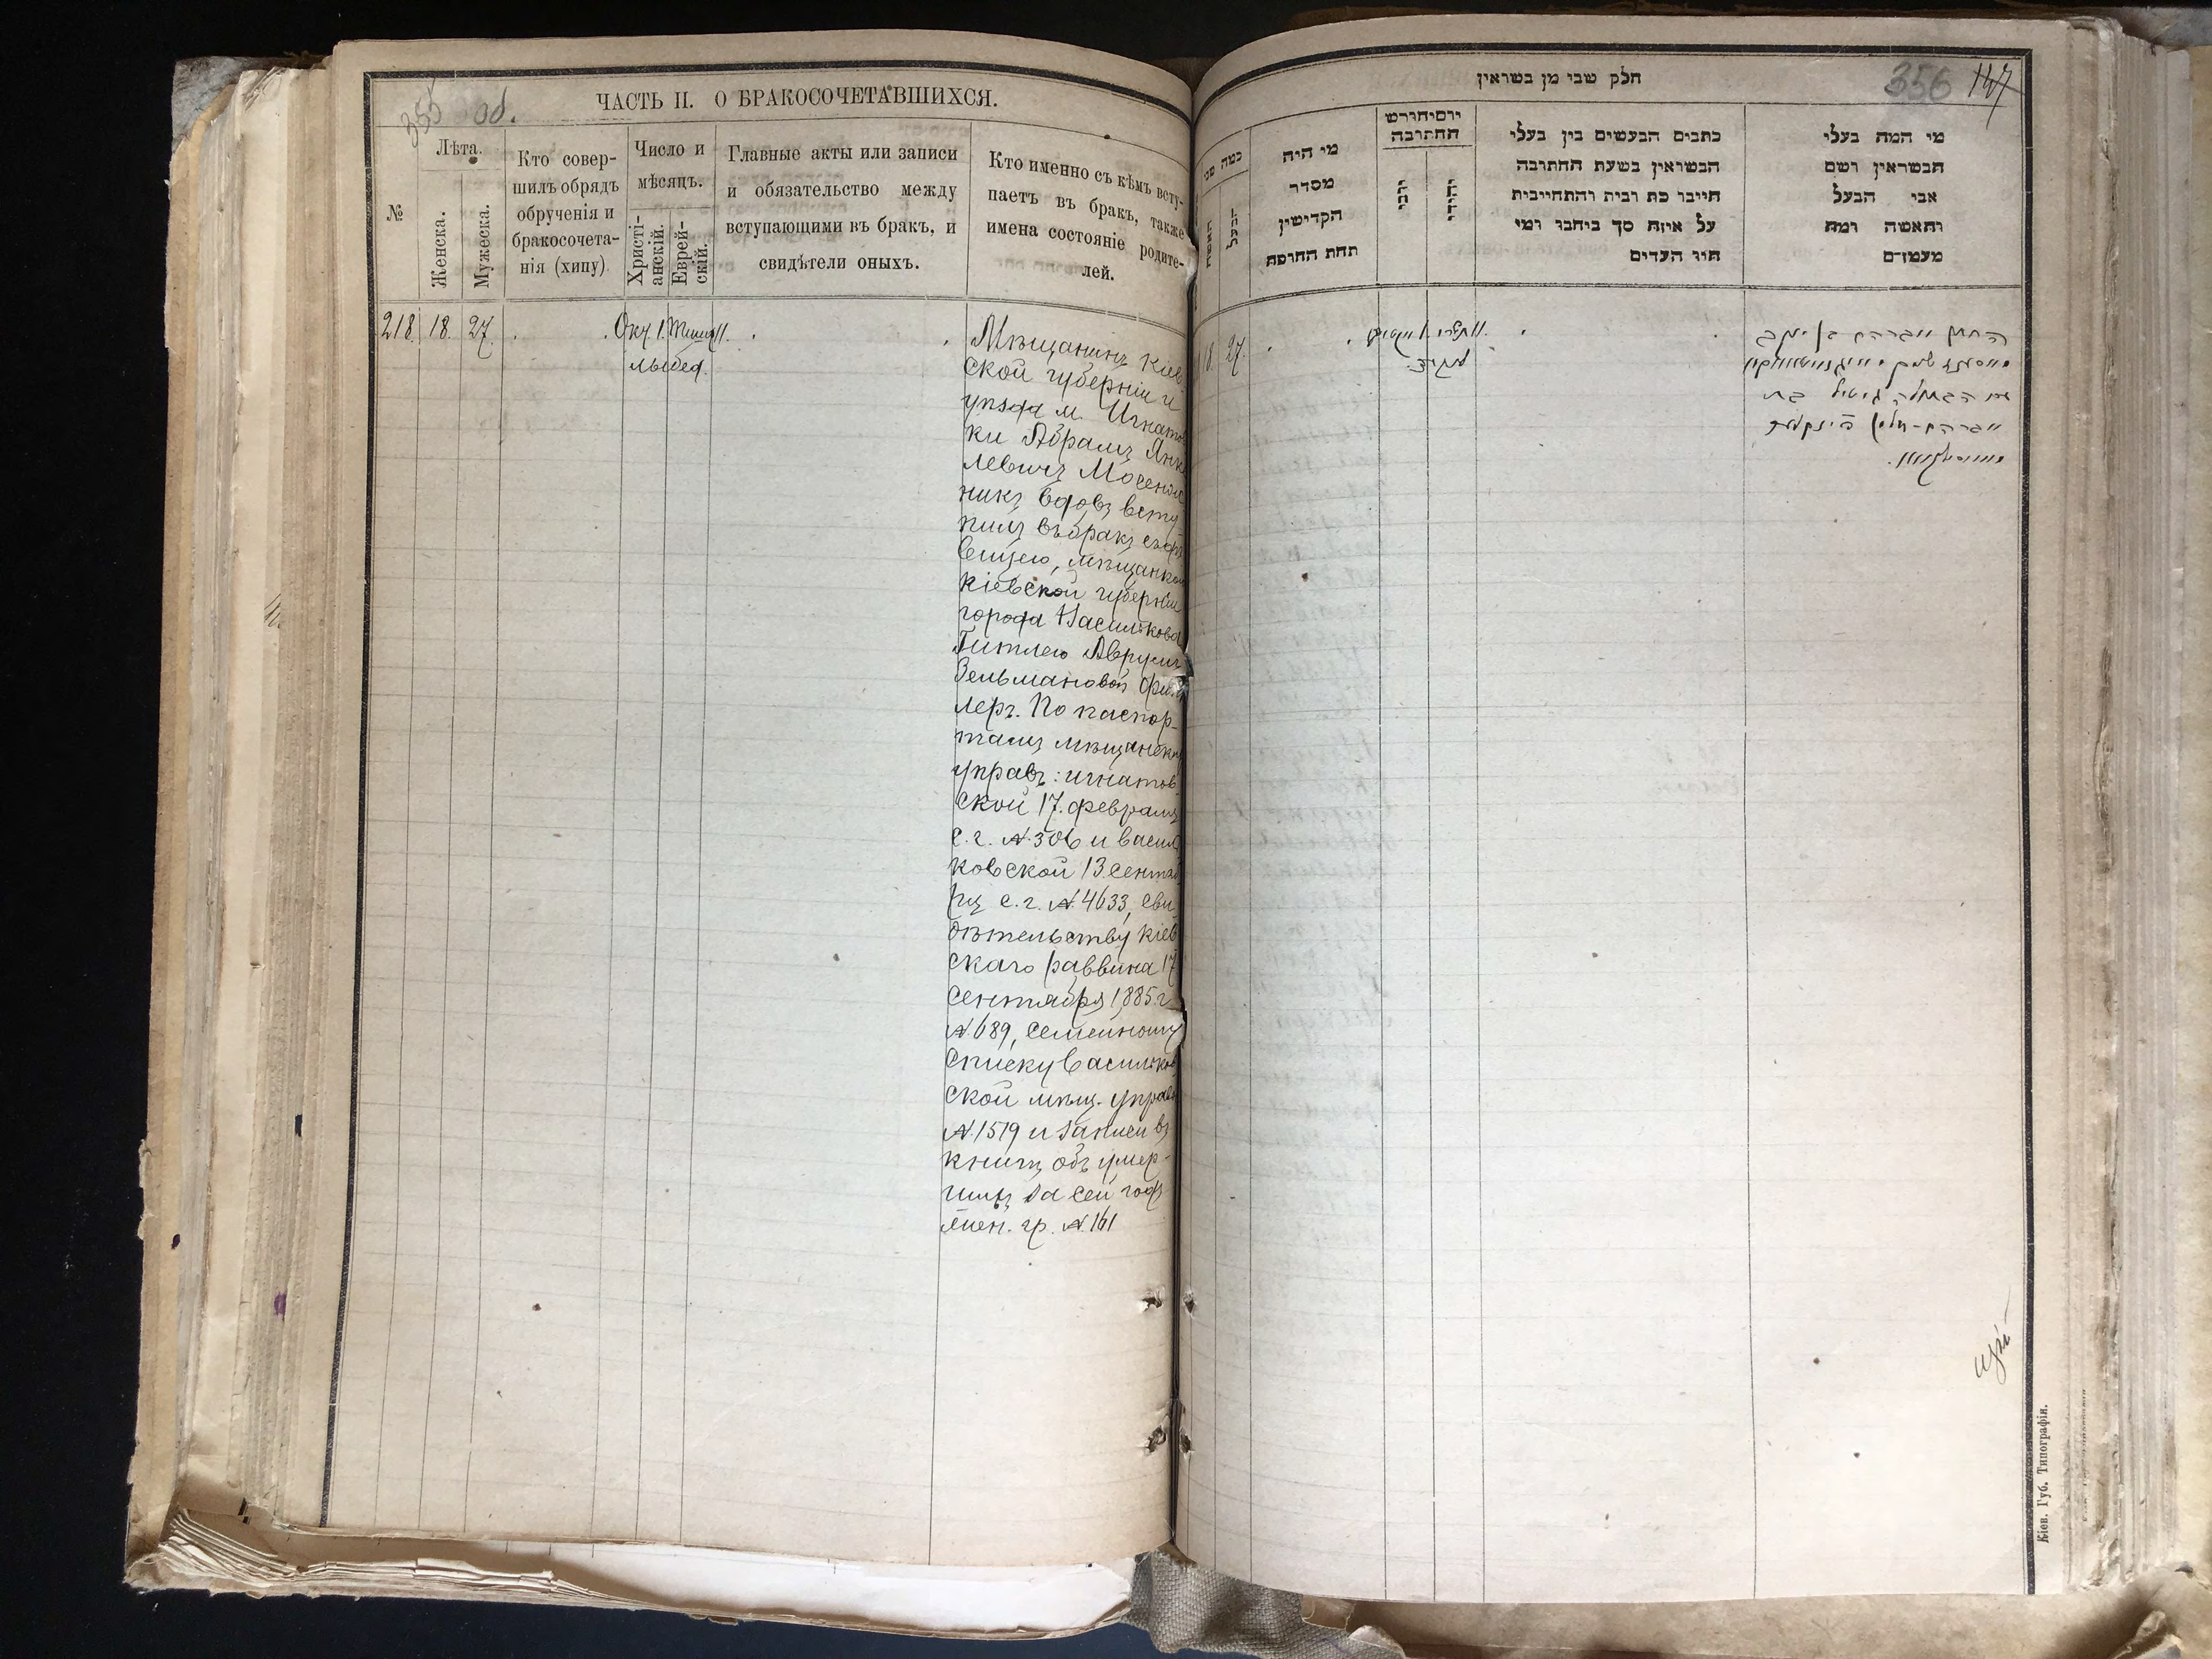 355 об.
ЧАСТЬ II. О БРАКОСОЧЕТАВШИХСЯ.
№
Лѣта.
Женска.
Мужеска.
Кто совер-
шилъ обрядъ
обрученія и
бракосочета-
нія (хипу)
Число и
мѣсяцъ.
Христі-
анскій.
Еврей-
скій.
Главные акты или записи
и обязательство между
вступающими въ бракъ, и
свидѣтели оныхъ.
Кто именно съ кѣмъ всту-
паетъ въ бракъ, также
имена состояніе родите-
лей.
218. 18. 27.
Окт. 1. Тишри 11.
Лыбед.
Мѣщанинъ Кіев
ской губерніи и
уѣзда м. Игнатов
ки Абрамъ Янке
левичъ Мосенж
никъ вдовъ всту
пилъ въ бракъ съ дѣ
вицею, мѣщанкою
Кіевской губерніи
города Василькова
Гитлею Аврумъ
Зельмановой
леръ. По паспор-
тамъ мѣщанскихъ
управъ: игнатов
ской 17. февраля
с. г. № 306 и василь
ковской 13 сентяб
ря с. г. № 4633, сви
дѣтельству кіев
скаго раввина 17
сентября 1885 г.
№ 689, семейному
списку васильков
ской мѣщ. управы
№ 1519 и записи въ
книгѣ объ умер-
шихъ за сей годъ
жен. гр. № 161
חלק שבי מן בשראין
356 147
כמה שני
האשה
הבעל
מי היה
מסדר
הקדישין
תחת החופה
יום וחודש
החתובה
כתבים הנעשים בין בעלי
הבשראין בשעת החתובה
חייבר כת רבית והתחייבית
על איזה סך ביחבו ומי
חיו העדים
מי המה בעלי
הבשראין ושם
אבי הבעל
והאשה ומה
מעמדם
18. 27.
החתן אברהם בן יעקב
עם הבתולה גיטיל בת
אברהם-זלמן
Кіев. Губ. Типографія.